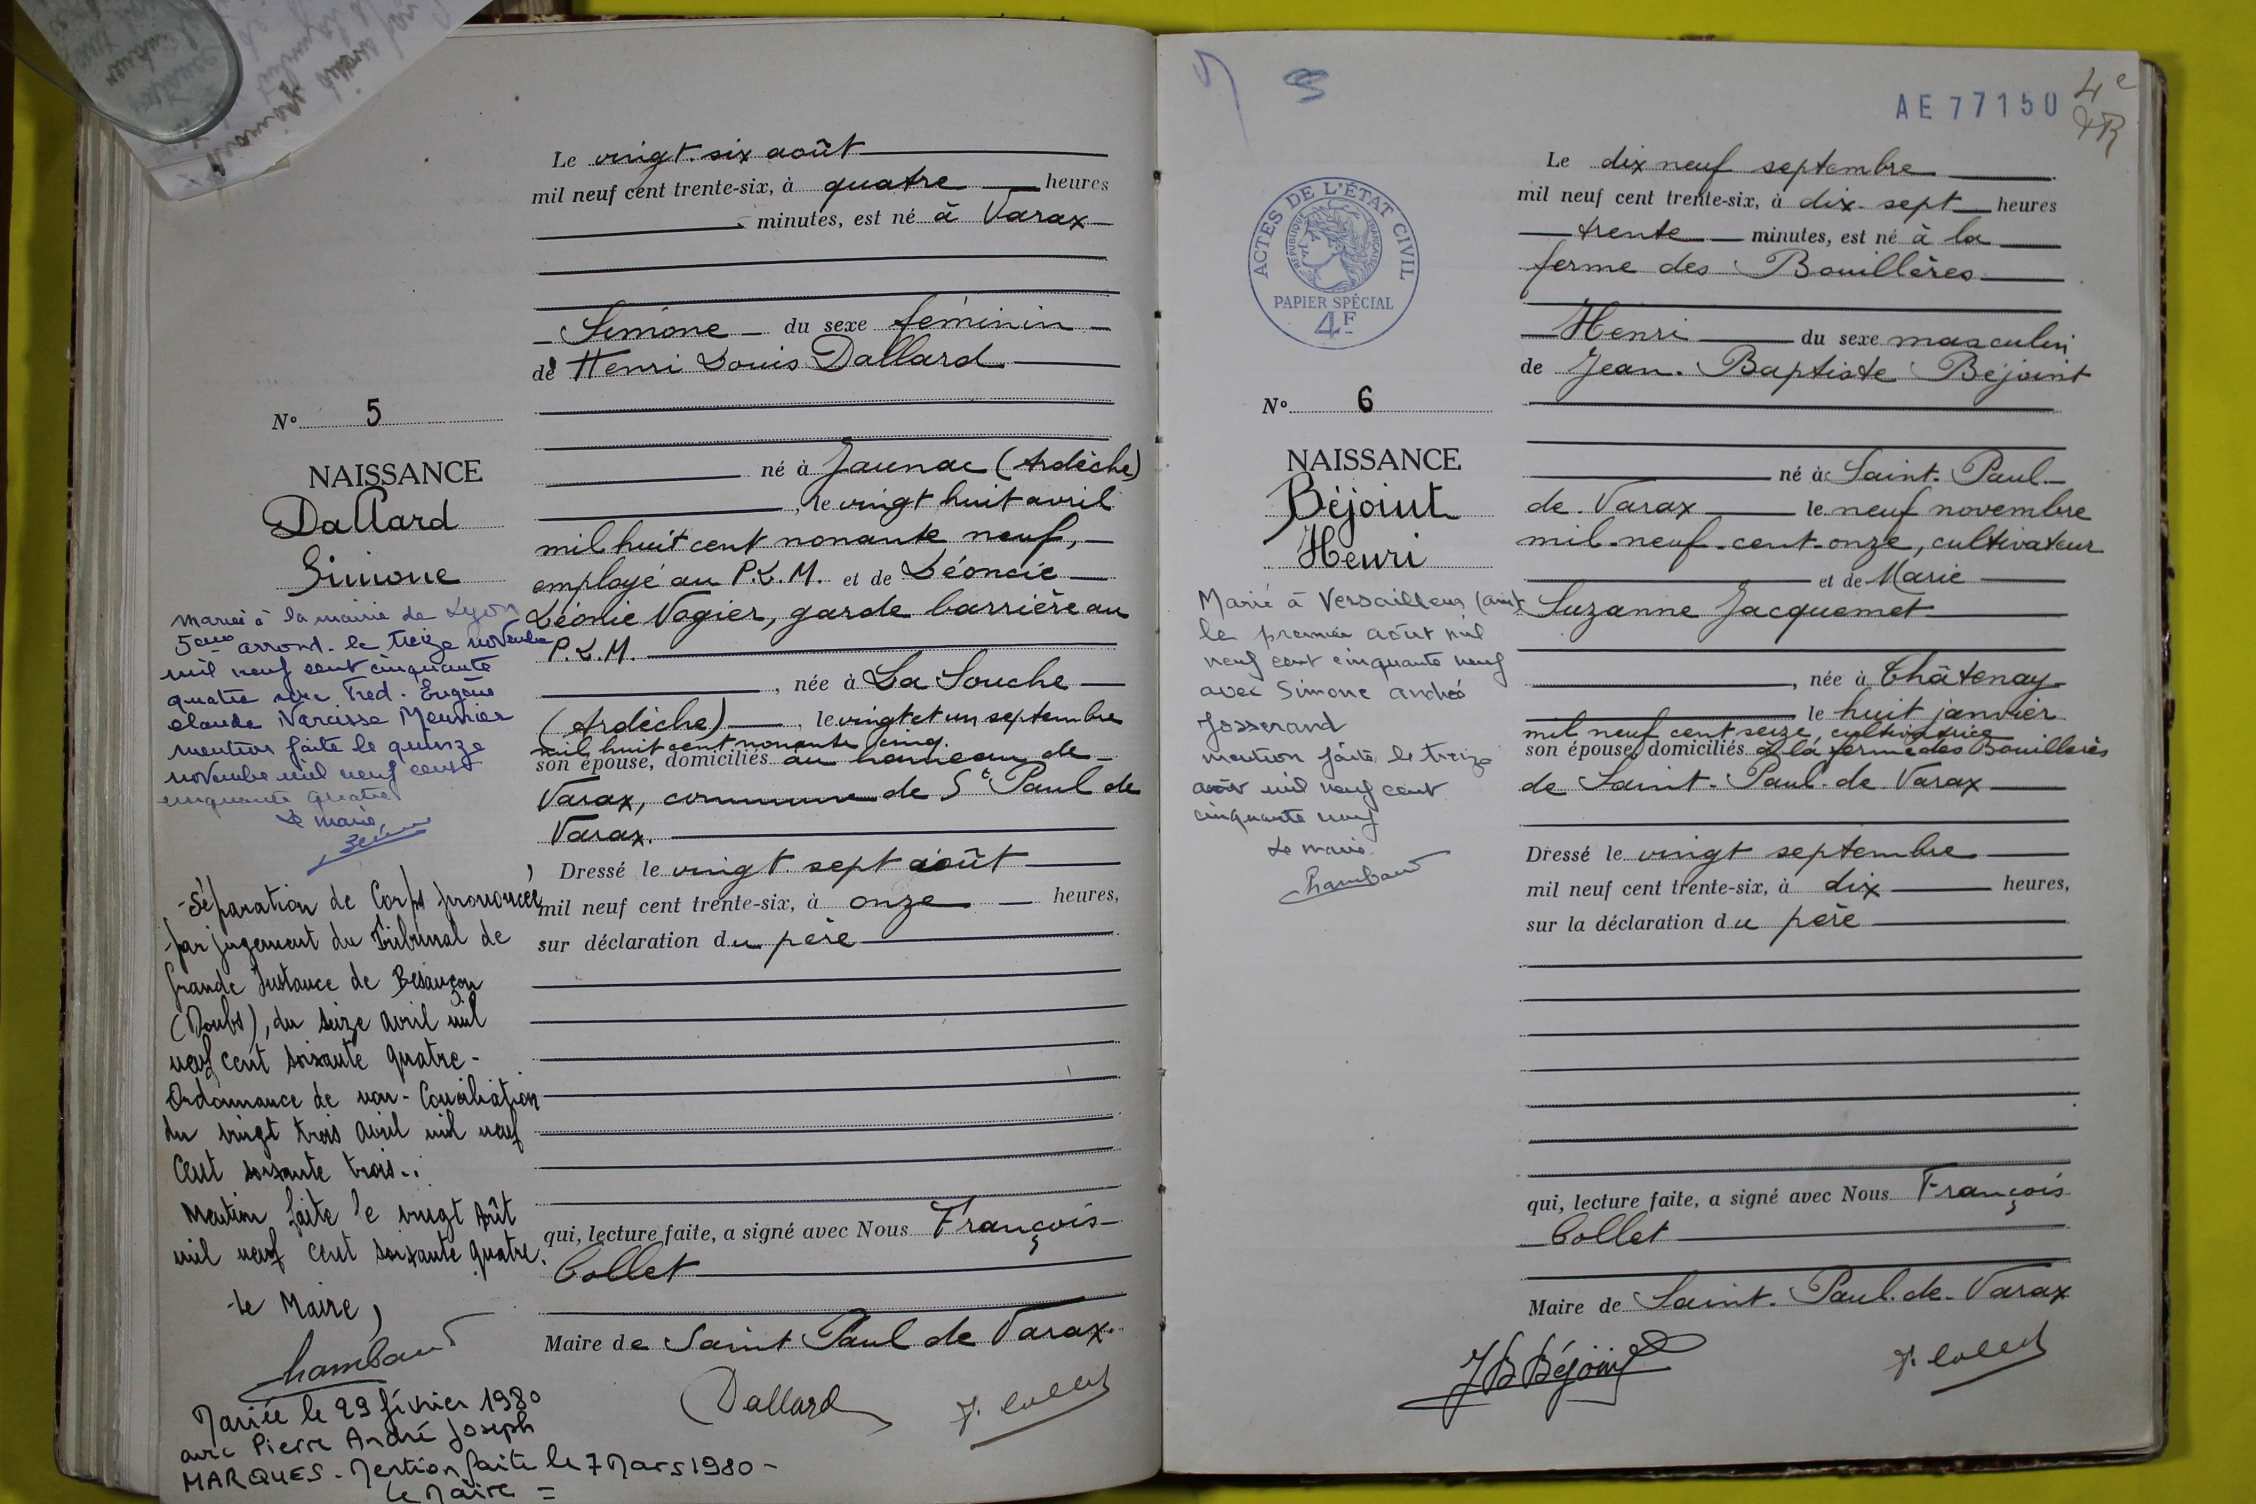 Le vingt-six août
mil neuf cent trente-six, à quatre heures
minutes, est né à Varax
Simone du sexe féminin
de Henri Louis Dallard
né à Jaunac (Ardèche)
, le vingt huit avril
mil huit cent nonante neuf,
employé au P.L.M. et de Léoncie
Léonie Vogier, garde barrière au
P.L.M.
, née à La Souche
(Ardèche), le vingt et un septembre
mil huit cent nonante cinq.
son épouse, domiciliés au hameau de
Varax, commune de St Paul de
Varax.
Dressé le vingt sept août
mil neuf cent trente-six, à onze heures,
sur déclaration du père
qui, lecture faite, a signé avec Nous François
Collet
Maire de Saint Paul de Varax.
Dallard F. Collet
No 5
NAISSANCE
Dallard
Simone
Mariée à la mairie de Lyon
5eme arrond. le treize novembre
mil neuf cent cinquante
quatre avec Fred. Eugène
Claude Narcisse Meunier
mention faite le quinze
novembre mil neuf cent
cinquante quatre
Le maire,
Séparation de Corps prononcée,
par jugement du Tribunal de
Grande Instance de Besançon
(Doubs), du seize avril mil
neuf cent soixante quatre -
Ordonnance de non-Conciliation
du vingt trois avril mil neuf
Cent soixante trois..
Mention faite le vingt Août
mil neuf cent soixante quatre.
Le Maire,
Chambaud
Mariée le 29 février 1980
avec Pierre André Joseph
MARQUES - Mention faite le 7 Mars 1980 -
Le Maire =
AE 77150
4e
ACTES DE L'ÉTAT CIVIL
RÉPUBLIQUE FRANÇAISE
PAPIER SPÉCIAL
4F
Le dix neuf septembre
mil neuf cent trente-six, à dix-sept heures
trente minutes, est né à la
ferme des Bouillères
Henri du sexe masculin
de Jean-Baptiste Béjoint
né à Saint-Paul-
de Varax le neuf novembre
mil-neuf-cent-onze, cultivateur
et de Marie
Suzanne Jacquemet
, née à Châtenay
le huit janvier
mil neuf cent seize, cultivatrice
son épouse, domiciliés à la ferme des Bouillères
de Saint-Paul-de-Varax
Dressé le vingt septembre
mil neuf cent trente-six, à dix heures,
sur la déclaration du père
qui, lecture faite, a signé avec Nous François
Collet
Maire de Saint-Paul-de-Varax
JB Béjoint F. Collet
No 6
NAISSANCE
Béjoint
Henri
Marié à Versailleux (Ain)
le premier août mil
neuf cent cinquante neuf
avec Simone Andrée
Josserand
mention faite le treize
août mil neuf cent
cinquante neuf
Le maire
Chambaud